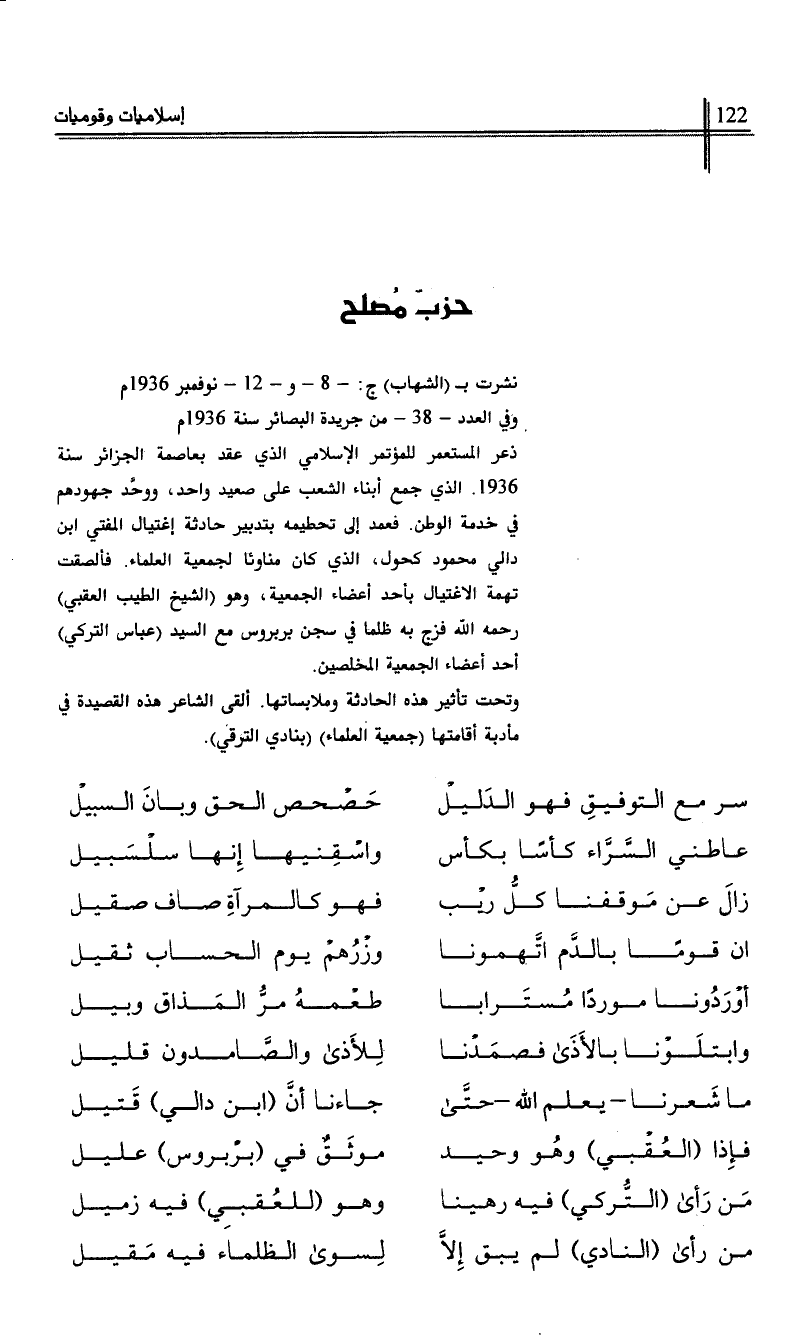 122 إسلاميات وقوميات
حزبٌ مُصلح
نشرت بـ (الشهاب) ج: – 8 – و – 12 – نوفمبر 1936م
وفي العدد – 38 – من جريدة البصائر سنة 1936م
ذعر المستعمر للمؤتمر الإسلامي الذي عقد بعاصمة الجزائر سنة
1936. الذي جمع أبناء الشعب على صعيد واحد، ووحَّد جهودهم
في خدمة الوطن. فعمد إلى تحطيمه بتدبير حادثة إغتيال المفتي ابن
دالي محمود كحول، الذي كان مناوئا لجمعية العلماء. فألصقت
تهمة الاغتيال بأحد أعضاء الجمعية، وهو (الشيخ الطيب العقبي)
رحمه الله فزج به ظلما في سجن بربروس مع السيد (عباس التركي)
أحد أعضاء الجمعية المخلصين.
وتحت تأثير هذه الحادثة وملابساتها. ألقى الشاعر هذه القصيدة في
مأدبة أقامتها (جمعية العلماء) (بنادي الترقي).
سر مع التوفيقِ فهو الدَليلْ حَصْحص الحق وبانَ السبيلْ
عاطني السَّرَّاء كأسًا بكأس واسْقِنيها إنها سلْسَبيل
زالَ عن مَوقفنا كلُّ ريْب فهو كالمرآةِ صاف صقيل
ان قومًا بالدَّم اتَّهمونا وزْرُهمْ يوم الحساب ثقيل
أوْرَدُونا موردًا مُسترابا طعْمهُ مرُّ المَذاق وبيل
وابتلَوْنا بالأذَىٰ فصمَدْنا لِلأذىٰ والصَّامدون قليل
ما شَعرنا –يعلم الله –حتَّىٰ جاءنا أنَّ (ابن دالي) قَتيل
فإذا (العُقْبي) وهُو وحيد موثَقٌ في (برْبروس) عليل
مَن رَأىٰ (التُّركي) فيه رهينا وهو (للعُقبي) فيه زميل
من رأىٰ (النادي) لم يبق إلاَّ لسوىٰ الظلماء فيه مَقيل